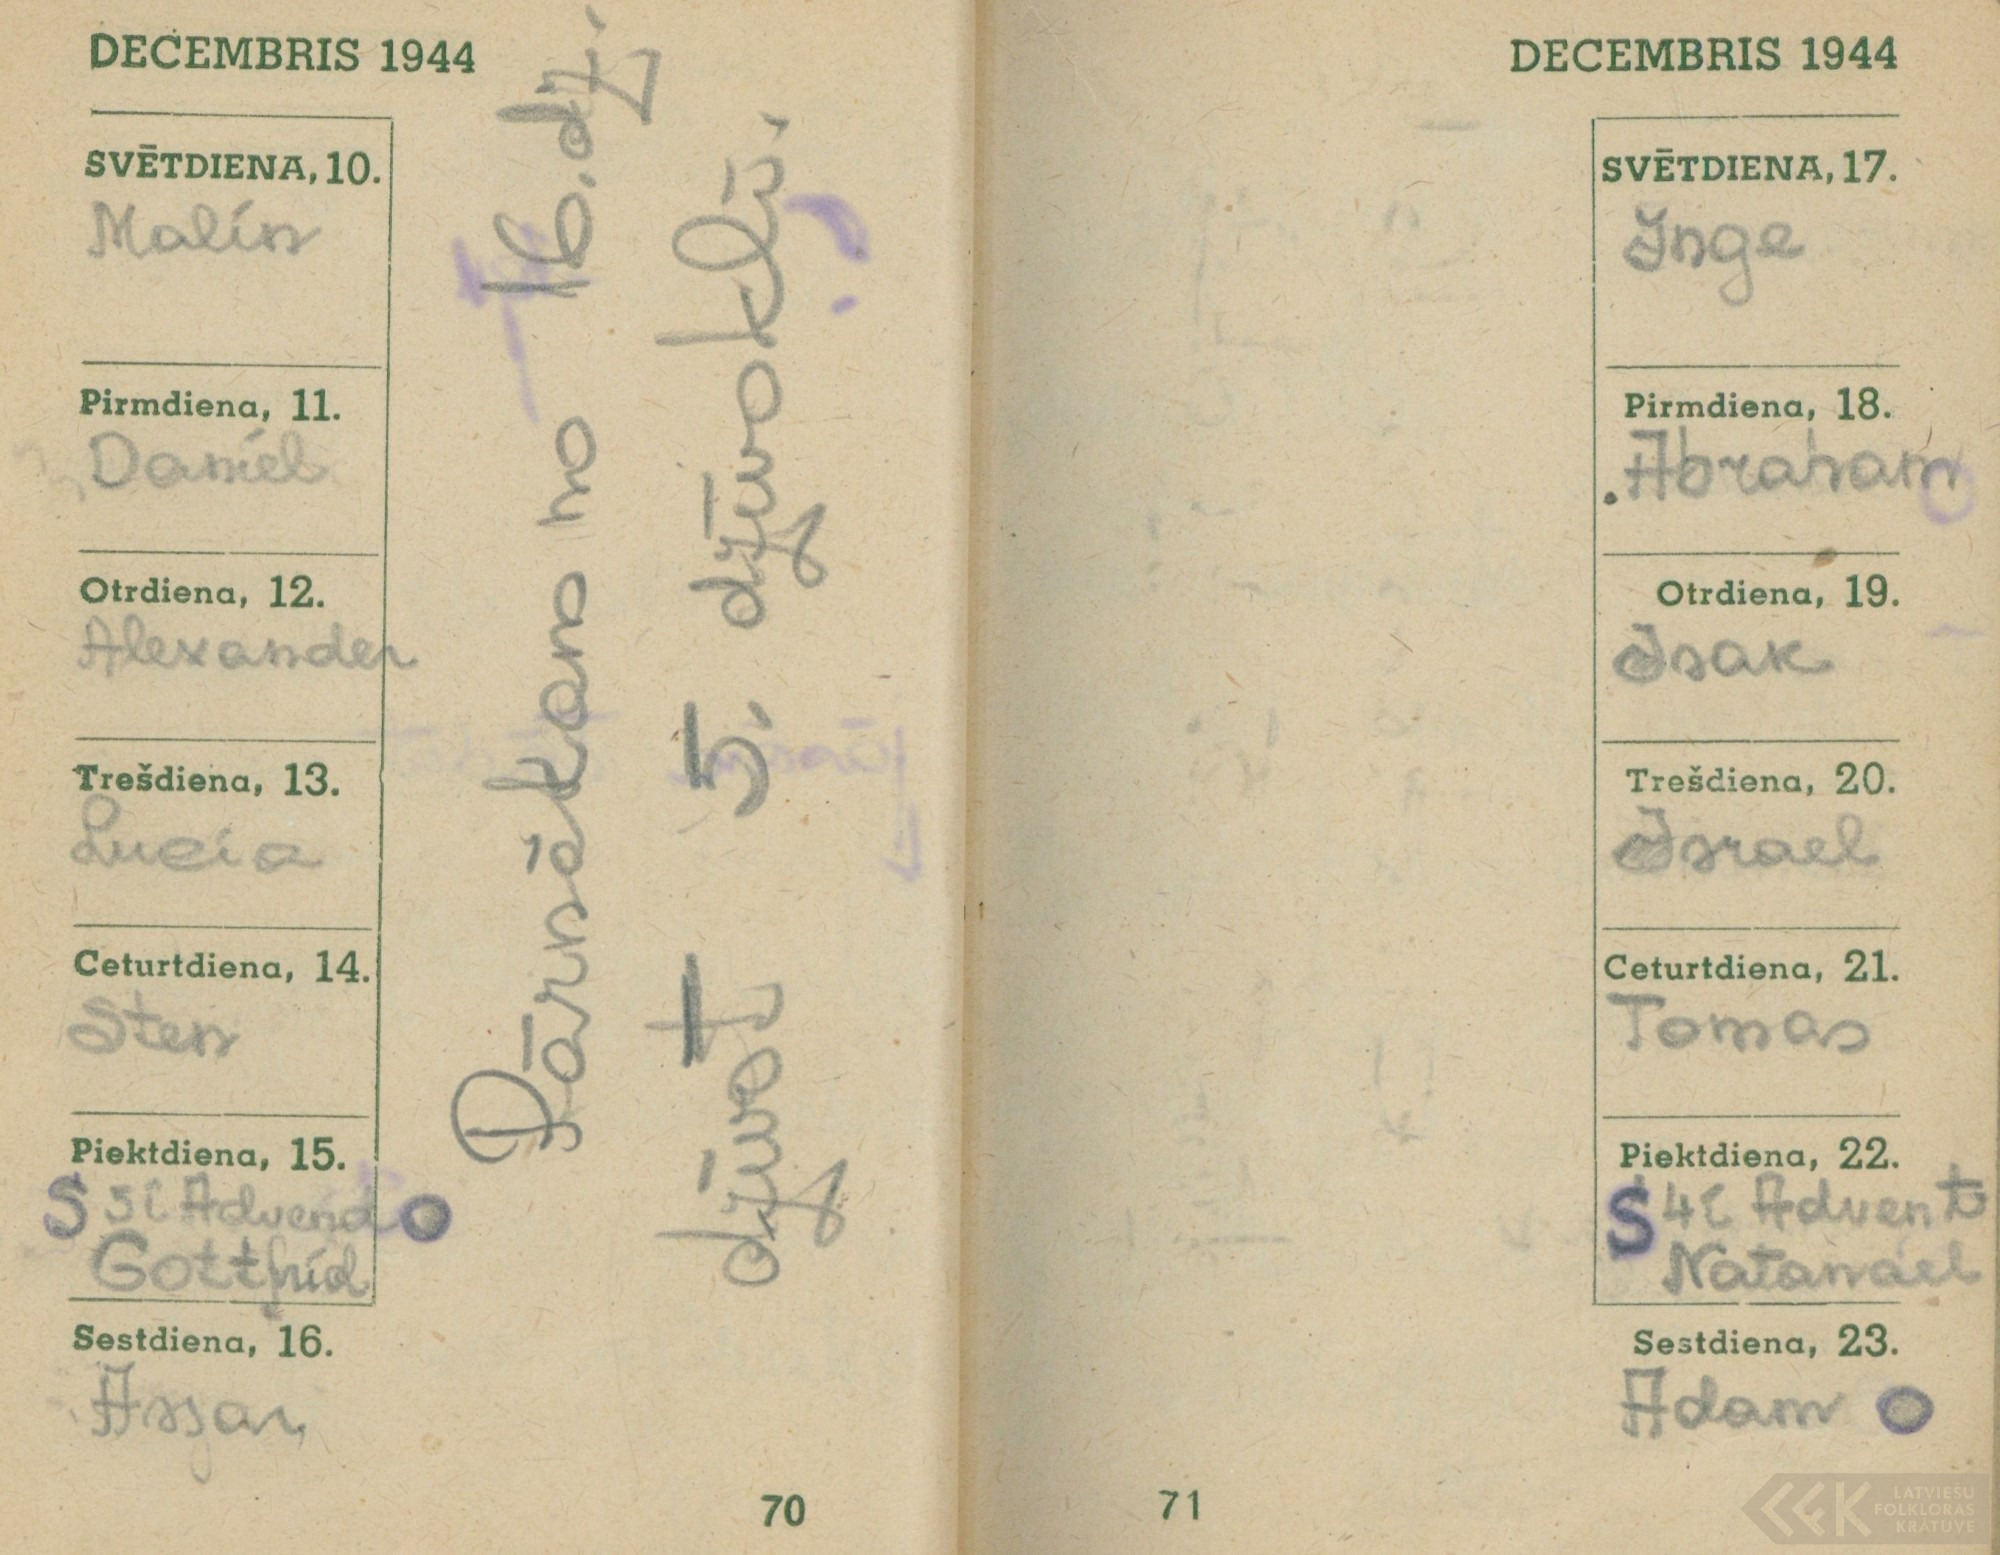 DECEMBRIS 1944
SVĒTDIENA, 10.
Malin
Pirmdiena, 11.
Daniel
Otrdiena, 12.
Alexander
Trešdiena, 13.
Lucia
Ceturtdiena, 14.
Sten
Piektdiena, 15.
S 3 i Advend
Gottfrid
Sestdiena, 16.
Assar
Pārnākano no 16. dz.
dzīvot 5. dzīvoklī.
70
DECEMBRIS 1944
SVĒTDIENA, 17.
Inge
Pirmdiena, 18.
Abraham
Otrdiena, 19.
Isak
Trešdiena, 20.
Israel
Ceturtdiena, 21.
Tomas
Piektdiena, 22.
S 4 i Advent
Natanael
Sestdiena, 23.
Adam
71
LATVIEŠU
FOLKLORAS
KRĀTUVE